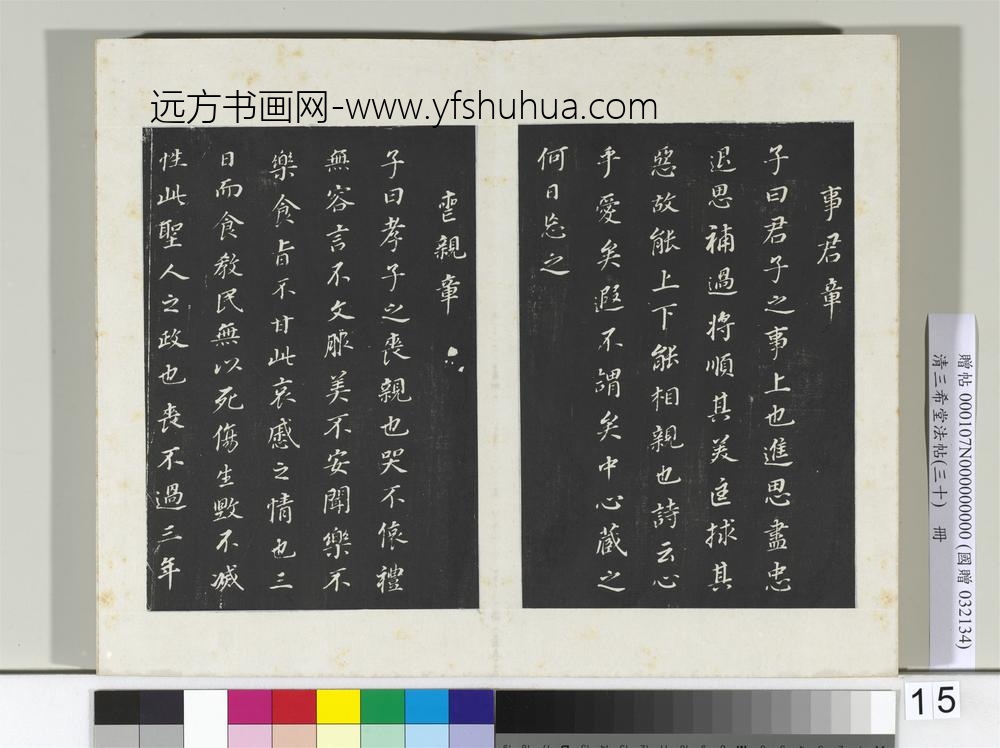 远方书画网-www.yfshuhua.com
事君章
子曰君子之事上也進思盡忠
退思補過將順其美匡捄其
惡故能上下能相親也詩云心
乎愛矣遐不謂矣中心藏之
何日忘之
喪親章
子曰孝子之喪親也哭不偯禮
無容言不文服美不安聞樂不
樂食旨不甘此哀慼之情也三
日而食教民無以死傷生毀不滅
性此聖人之政也喪不過三年
贈帖 000107N000000000 (國贈 032134)
清三希堂法帖(三十) 冊
15